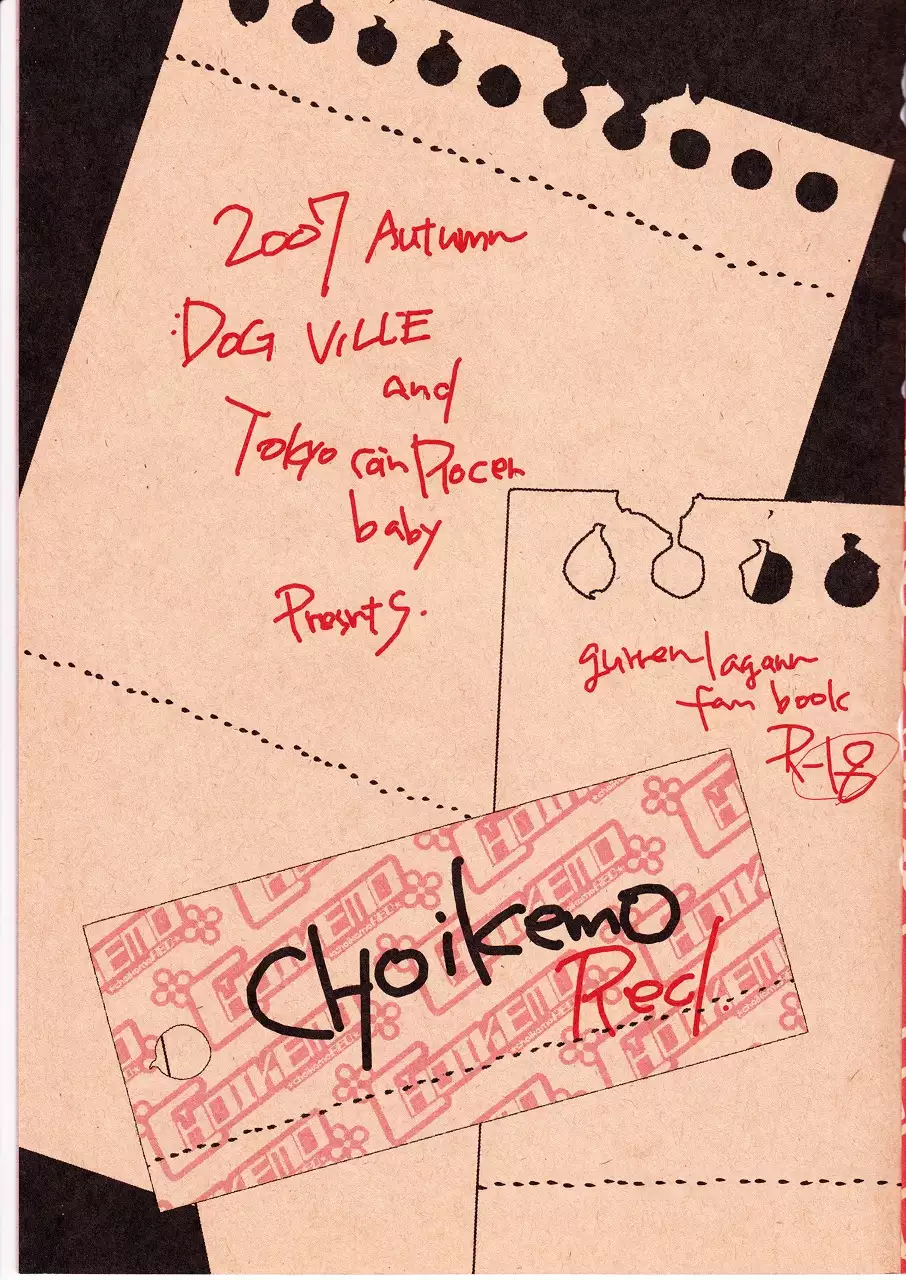 2007 Autumn
:DOG ViLLE
and
Tokyo rain Rocer
baby
Presnts.
gurren lagann
fan book
R-18
CHOikemo
Red.